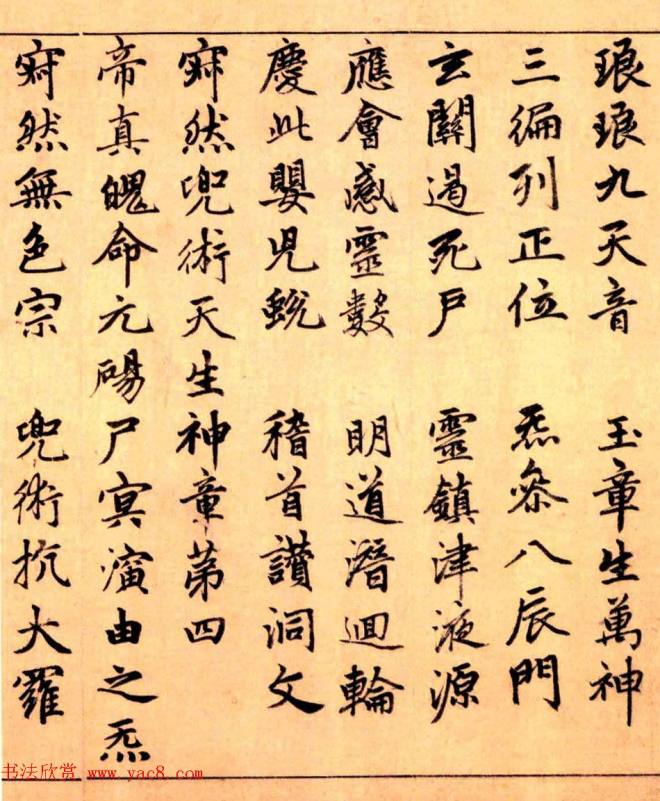 琅琅九天音　玉章生萬神
三徧列正位　炁叅八辰門
玄關遏死戶　靈鎮津液源
應會感靈數　明道潛迴輪
慶此嬰兒蛻　稽首讚洞文
寂然兜術天生神章第四
帝真魄命元碭尸冥演由之炁
寂然無色宗　兜術抗大羅
书法欣赏 www.yac8.com